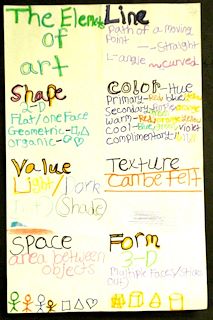 The Element
of
art
Line
Path of a moving
Point
Straight
L-angle curved
Shape
2-D
Flat/one Face
Geometric-
Organic-
Color-Hue
Primary-Red blue yellow
warm-Red orange yellow
cool-Blue green violet
complimentary
Value
Light/Dark
(Shade)
Texture
Can be felt
Space
area between
objects
Form
3-D
Multiple Faces/Stick
out